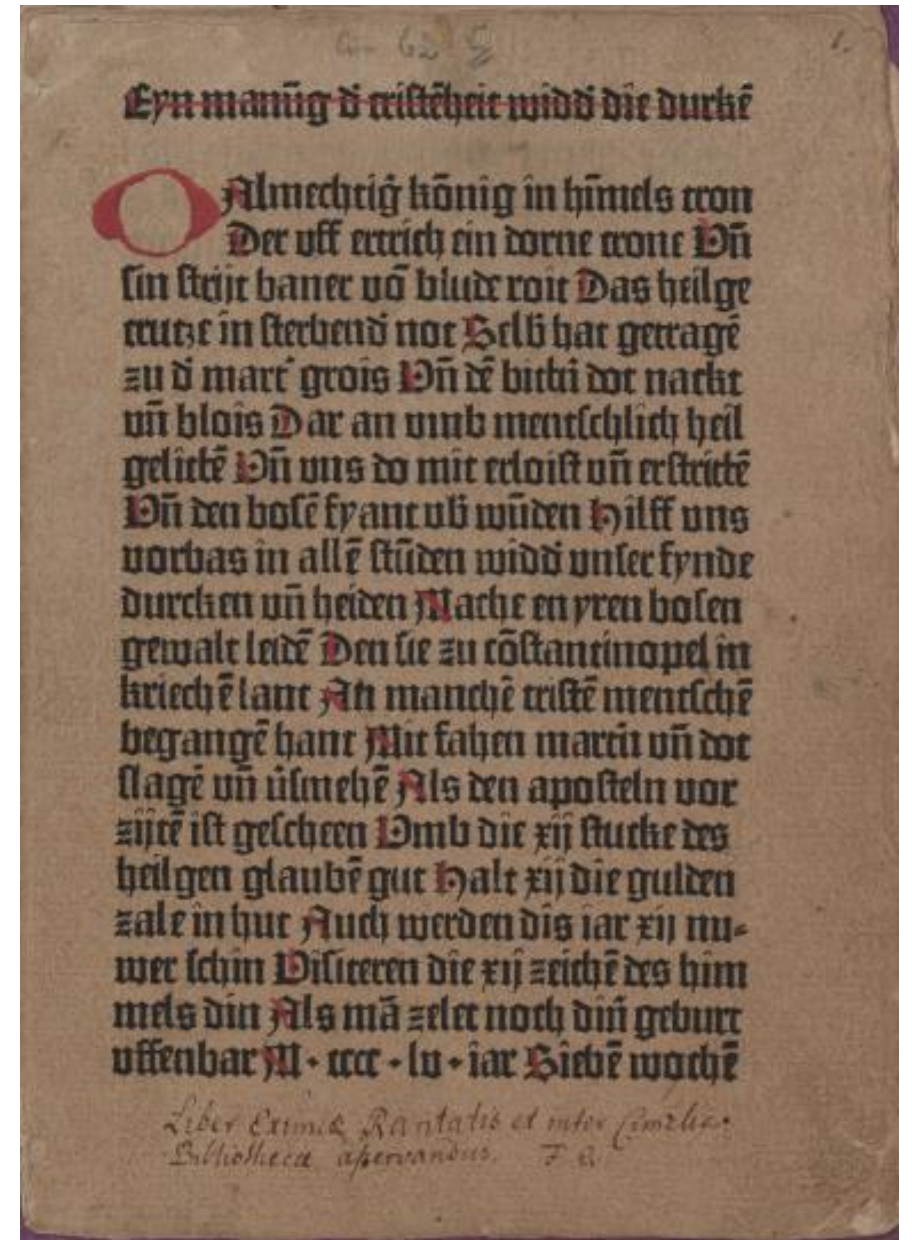 G 62
1.
Eyn manūg d̄ cristēheit widd̄ die durkē
O Almechtiḡ kōnig in hīmels cron
Der uff ertrich ein dorne crone Vn̄
sin strijt baner vō blude roit Das heilge
crutze in sterbend̄ not Selb̄ hat getragē
zu d̄ mart̄ grois Vn̄ dē bittn̄ dot nackt
vn̄ blois Dar an vmb mentschlich heil
gelittē Vn̄ vns do mit erloist vn̄ erstrittē
Vn̄ den bosē fyant vb̄ wūden Hilff vns
vorbas in allē stūden widd̄ vnser fynde
durcken vn̄ heiden Mache en yren bosen
gewalt leidē Den sie zu cōstantinopel in
kriechē lant An manchē cristē mentschē
begangē hant Mit fahen martn̄ vn̄ dot
slagē vn̄ v̄smehē Als den aposteln vor
zijtē ist gescheen Vmb die xij stucke des
heilgen glaubē gut Halt xij die gulden
zale in hut Auch werden dis iar xij nu⸗
wer schin Visiteren die xij zeichē des him
mels din Als mā zelet noch din̄ geburt
uffenbar M · cccc · lv · iar Siebē wochē
Liber Eximiæ Raritatis et inter Cimelia
Bibliothecæ asservandus.